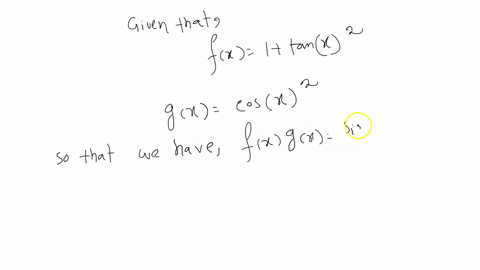 Given that,
f(x) = 1 + tan(x)²
g(x) = cos(x)²
so that we have, f(x) g(x) =